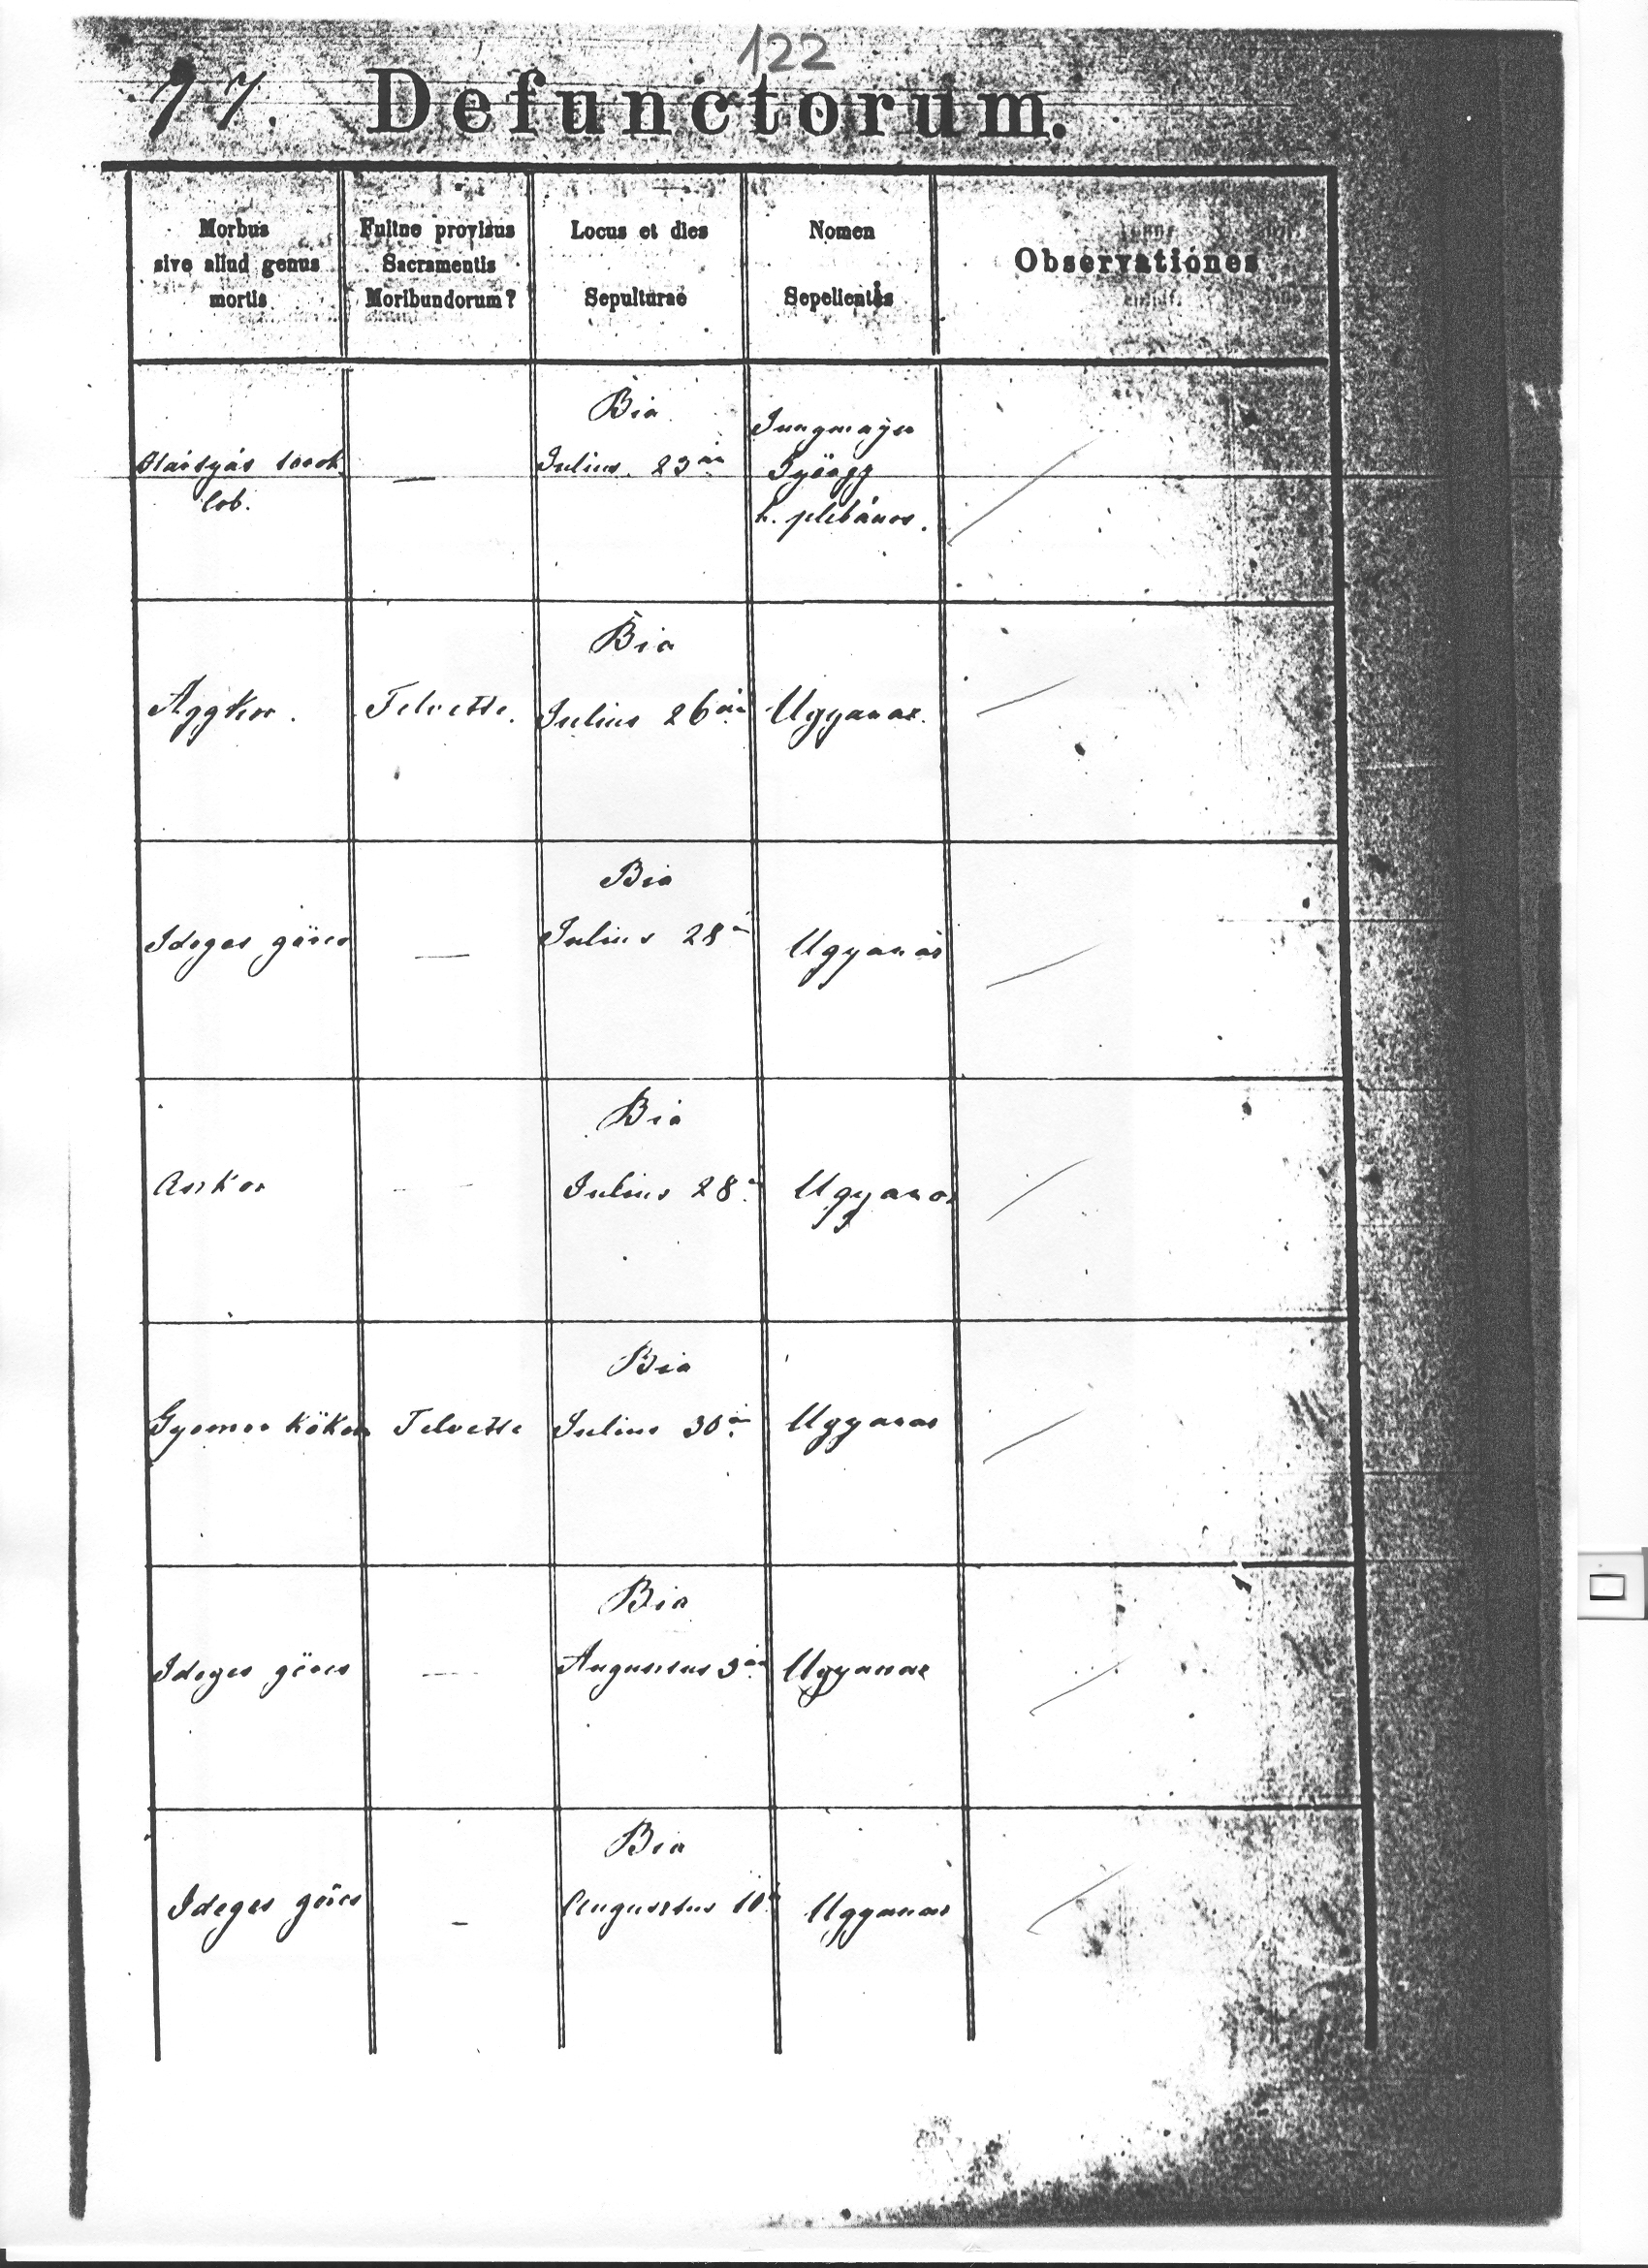 122
77. Defunctorum.
Morbus
sive aliud genus
mortis
Fuitne provisus
Sacramentis
Moribundorum?
Locus et dies
Sepulturae
Nomen
Sepelientis
Observationes
Hártyás torok
lob.
—
Bia
Julius 23án
Jungmayer
György
h. plébános.
Aggkor.
Felvette.
Bia
Julius 26án
Ugyanaz.
Ideges görcs
—
Bia
Julius 28án
Ugyanaz
Bia
Julius 28
Ugyanaz
Gyomor
Felvette
Bia
Julius 30án
Ugyanaz
Ideges görcs
—
Bia
Augusztus 3án
Ugyanaz
Ideges görcs
—
Bia
Augusztus 10
Ugyanaz